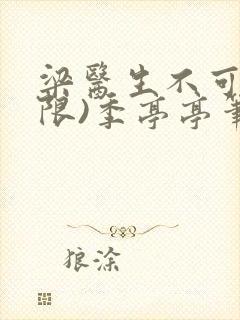 梁醫生不可
限)季亭亭筆
狼涂